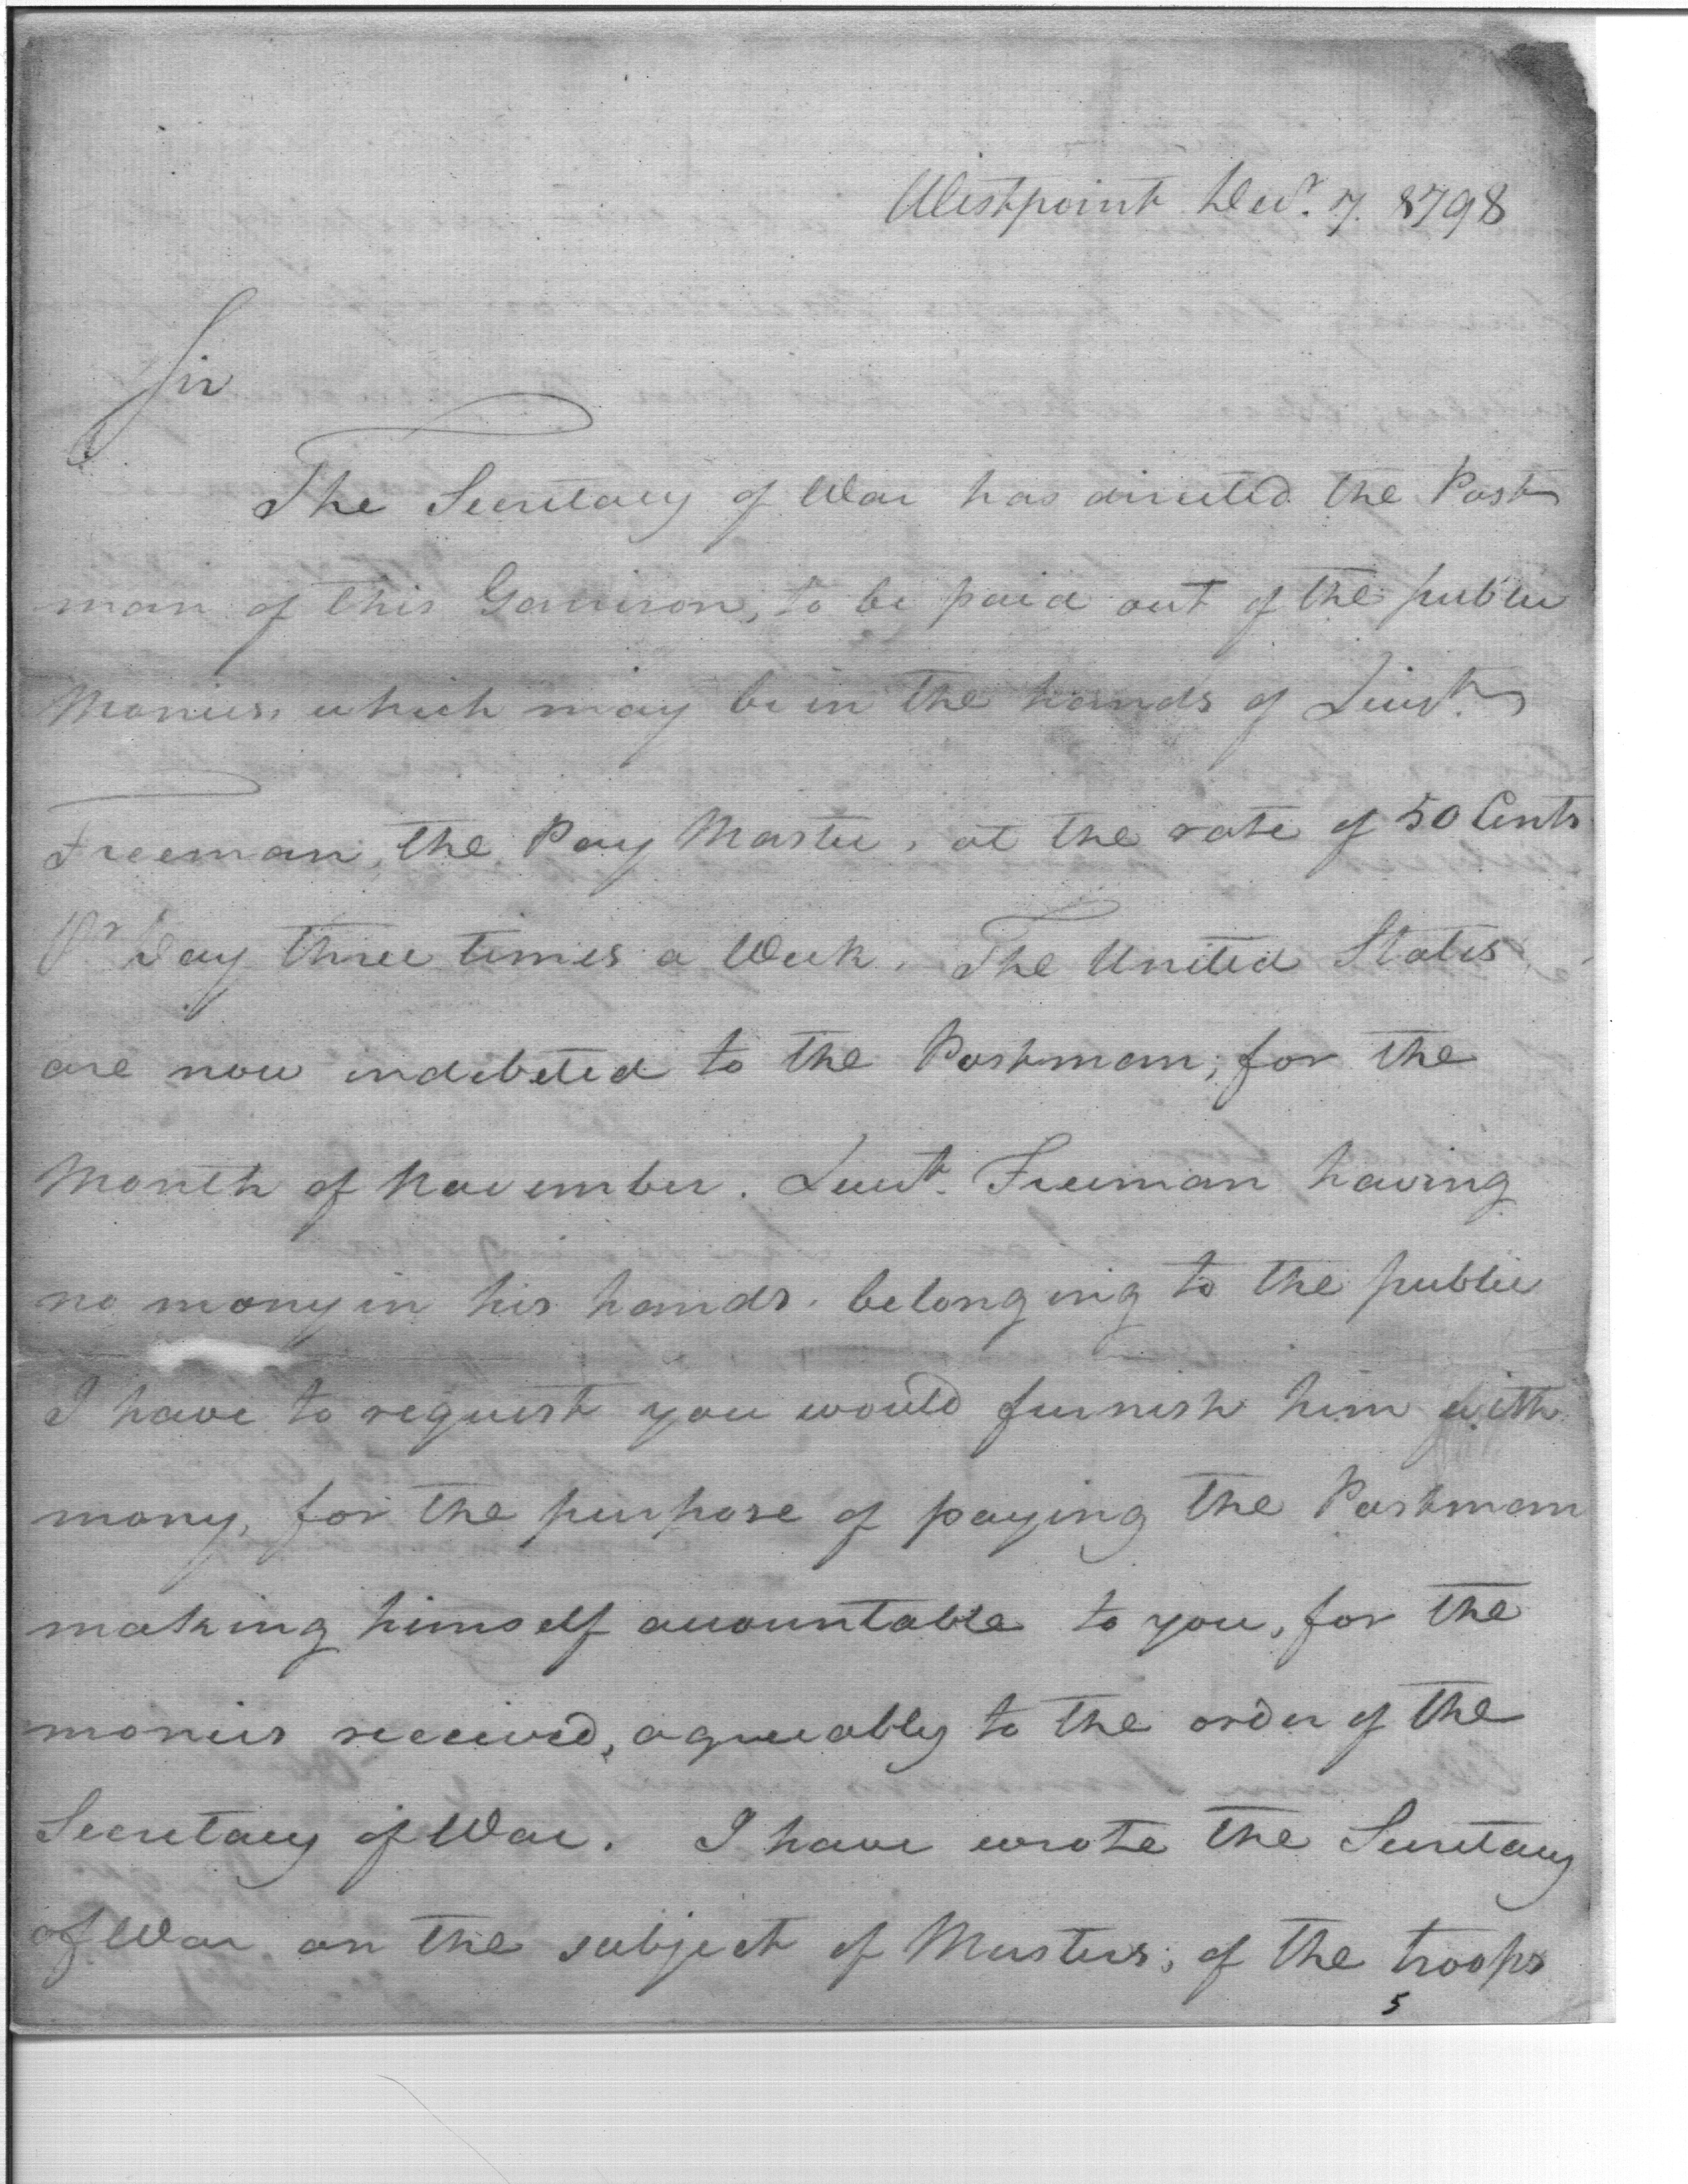 Westpoint Decr. 7. 1798
Sir
The Secretary of War has directed the Post
man of this Garrison, to be paid out of the public
Monies, which may be in the hands of Lieut.
Freeman, the Pay Master, at the rate of 50 Cents
Pr. Day three times a Week. The United States
are now indebted to the Postman; for the
Month of November. Lieut. Freeman having
no mony in his hands. belonging to the public
I have to request you would furnish him with
mony, for the purpose of paying the Postman
making himself accountable to you, for the
monies received, agreeably to the order of the
Secretary of War. I have wrote the Secretary
of War on the subject of Musters; of the troops
5